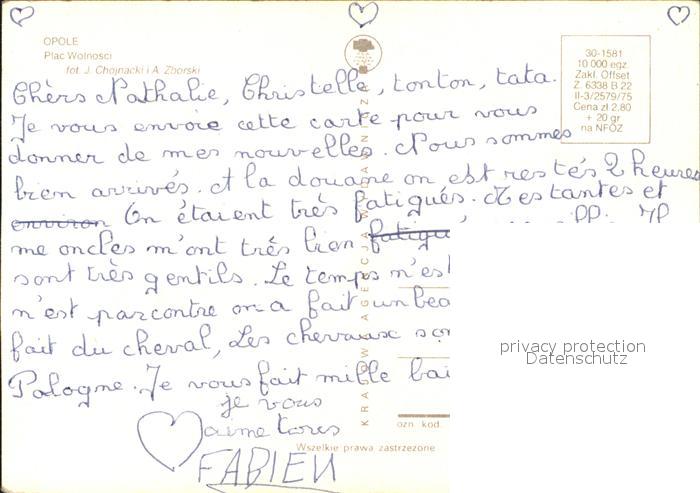 OPOLE
Plac Wolności
fot. J. Chojnacki i A. Zborski
30-1581
10 000 egz.
Zakl. Offset
Z. 6338 B 22
II-3/2579/75
Cena zł 2,80
+ 20 gr
na NFOZ
Chèrs Nathalie, Christelle, tonton, tata.
Je vous envoie cette carte pour vous
donner de mes nouvelles. Nous sommes
bien arrivés. A la douane on est restés 2 heures
environ On étaient très fatigués. Mes tantes et
me oncles m'ont très bien Il
sont très gentils. Le temps n'es
n'est parcontre on a fait un bea
fait du cheval, Les chevaux so
Pologne. Je vous fait mille bai
je vous
aime tores
FABIEN
KRAJOWA AGENCJA WYDAWNICZA
ozn. kod.
Wszelkie prawa zastrzeżone
privacy protection
Datenschutz